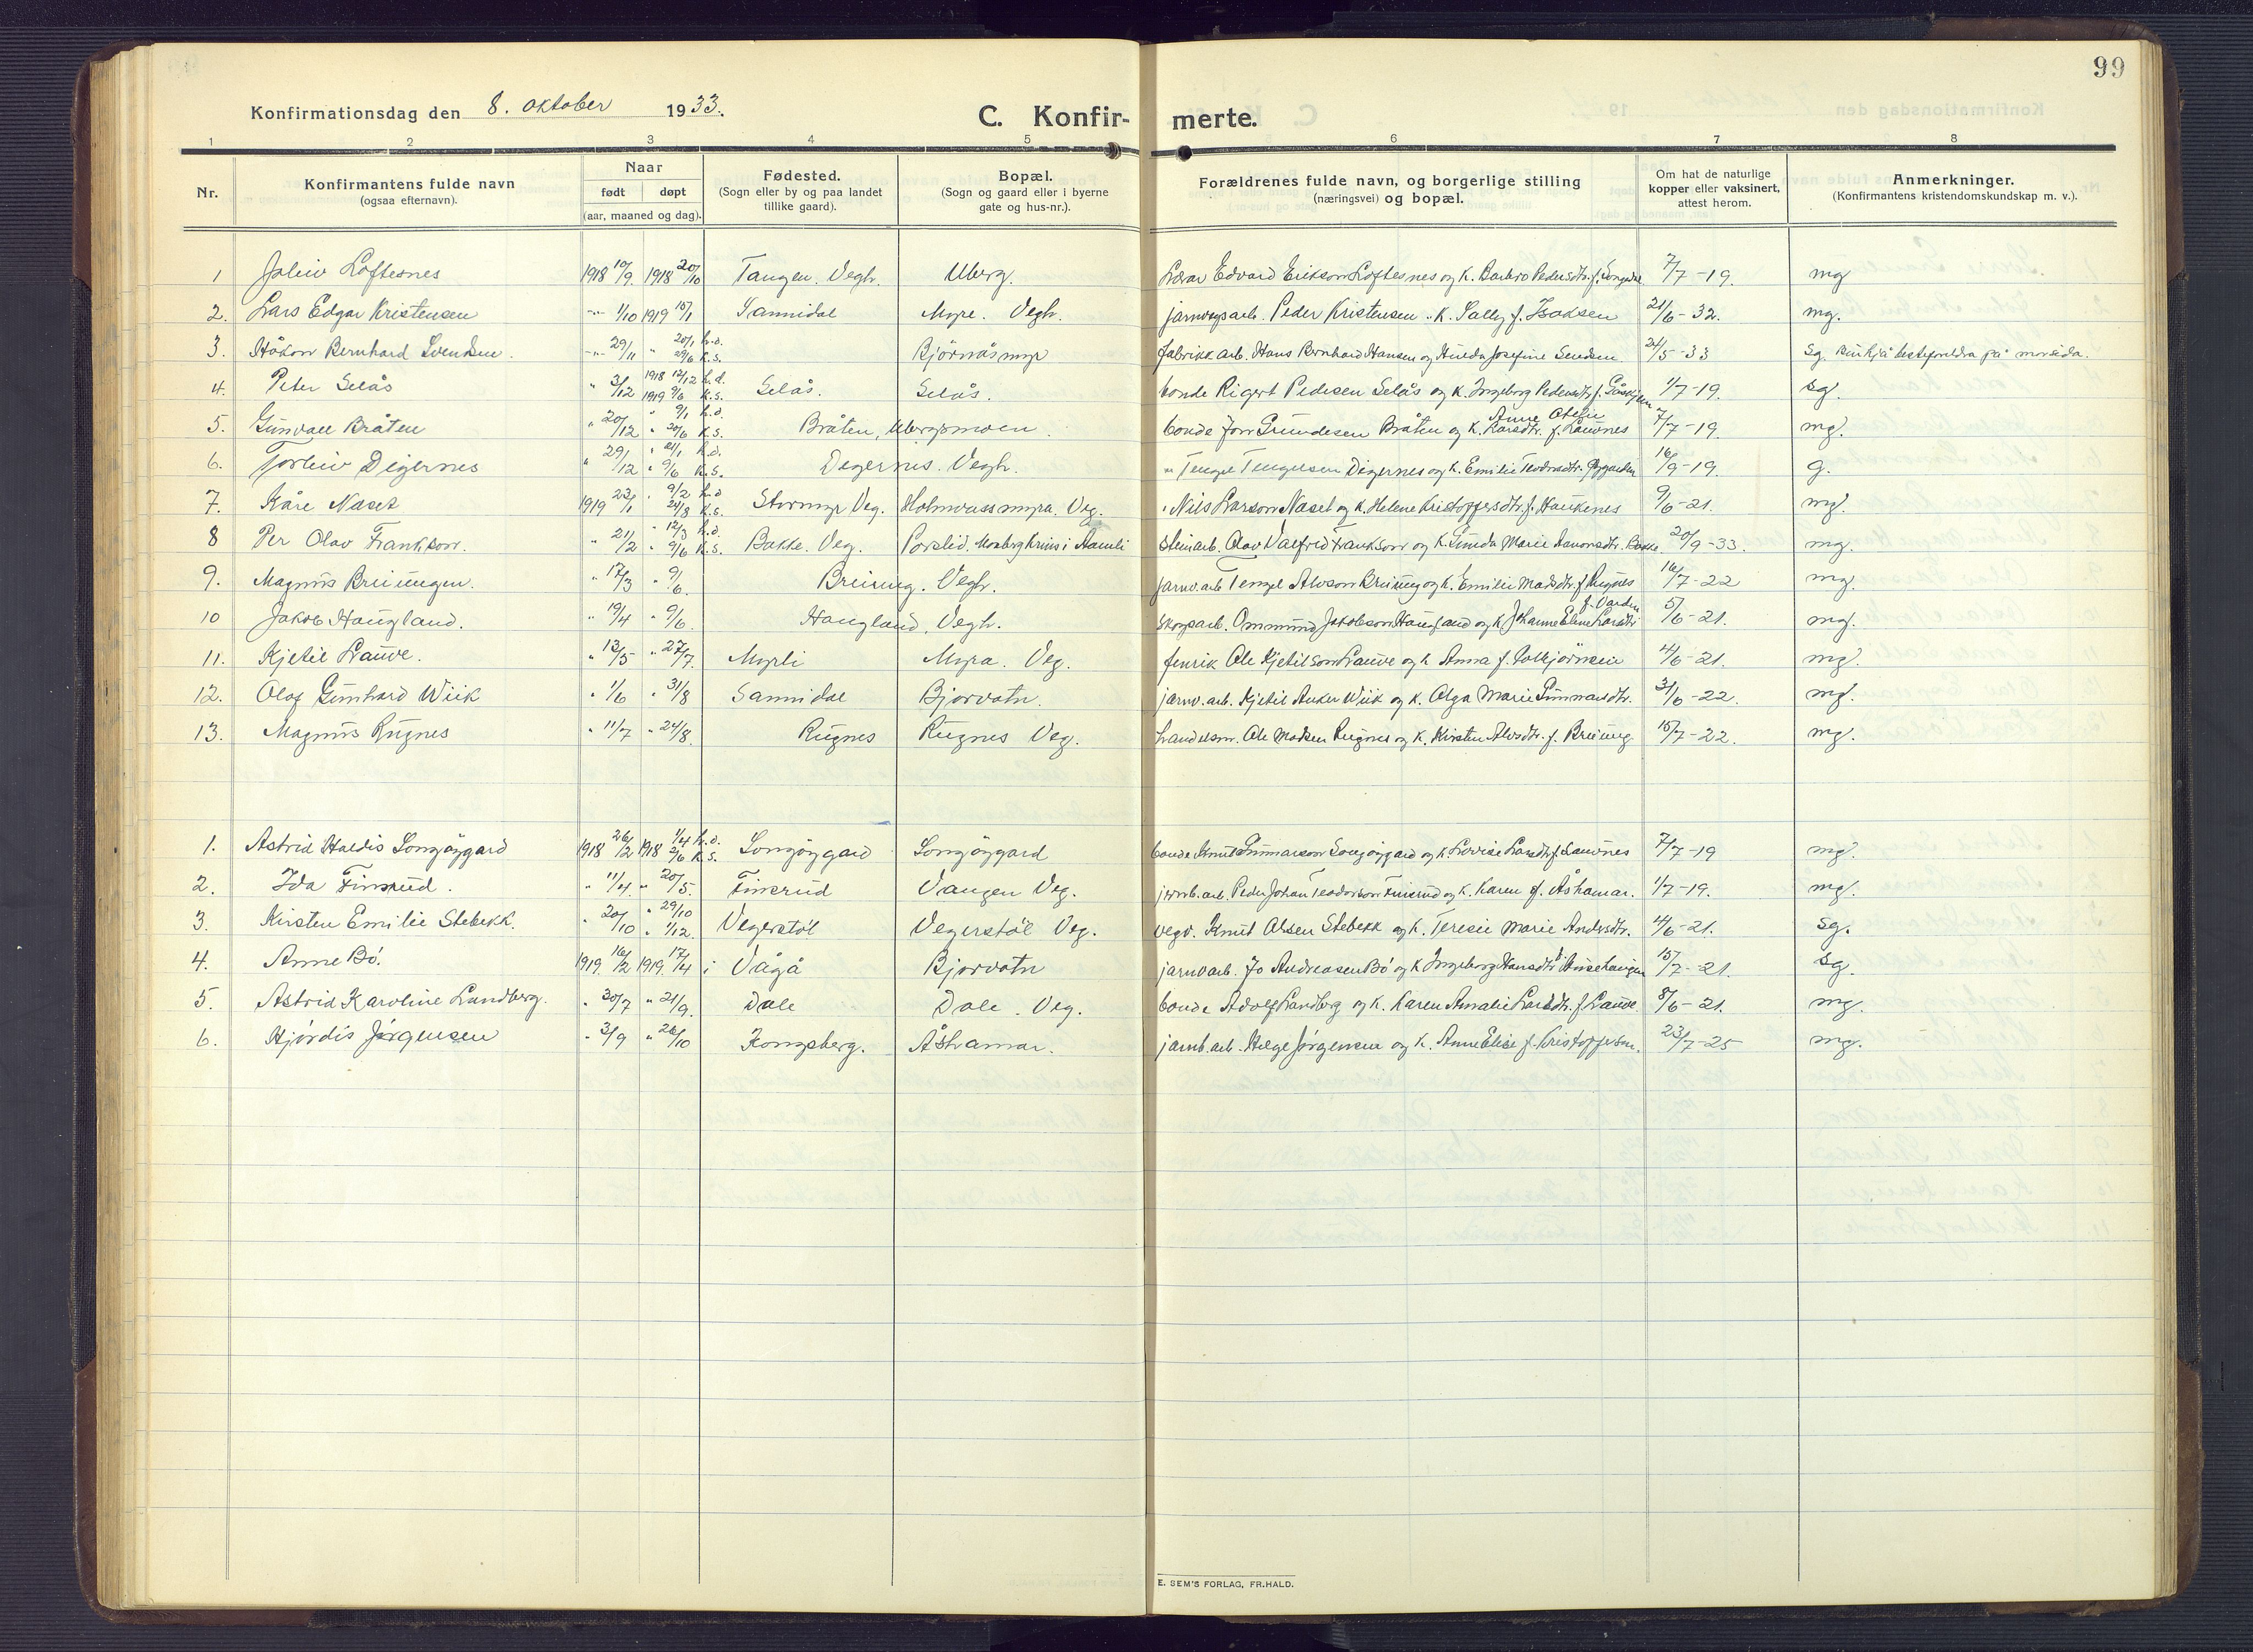 99
Konfirmationsdag den 8. oktober 1933.
C. Konfir- merte.
1 2 3 4 5 6 7 8
Nr. Konfirmantens fulde navn (ogsaa efternavn). Naar født døpt (aar, maaned og dag). Fødested. (Sogn eller by og paa landet tillike gaard). Bopæl. (Sogn og gaard eller i byerne gate og hus-nr.). Forældrenes fulde navn, og borgerlige stilling (næringsvei) og bopæl. Om hat de naturlige kopper eller vaksinert, attest herom. Anmerkninger. (Konfirmantens kristendomskundskap m. v.).
1 Loftesnes 1918 10/9. 1918 20/10 Tangen. Vegh. Uberg. Edvard Erikson Loftesnes og k. Barbro Pedersdtr. f. 7/7 -19. mg
2. Lars Edgar Kristensen -"- 1/10 1919 15/1 Sannidal Myre. Vegh. jarnvegsarb. Peder Kristensen .. K. Sally f. Isaksen 21/6 - 32. mg.
3. Håkon Bernhard Svendsen. -"- 29/11 " 20/1 h.d. 29/6 k.s. Björnåsmyr fabrikk arb. Hans Bernhard Hansen og Hulda Josefine 24/5 - 33 Sg. besteforeldra på morsida.
4. Peter Selås " 3/12 1918 12/12 h.d. 1919 9/6 k.s. Selås. Selås. bonde Rigert Pedersen Selås og k. Ingeborg Pedersdtr. f. 1/7 -19. sg.
5. Gunvall Bråten " 20/12 " 9/1 h.d. " 20/6 k.s. Bråten, Ubergsmoen. bonde Jon Gundesen Bråten og k. Anne Larsdtr. f. Lauvnes 7/7 -19. mg.
6. Torleiv Digernes " 29/12 " 21/1 h.d. " 9/6 k.s. Digernes. Vegh. " Tengel Tengelsen Digernes og k. Emilie 16/9 -19. g.
7. Kåre Naset 1919 23/1 " 9/2 h.d " 24/8 k.s. Stormyr Veg. Holmvassmyra. Veg. " Nils Larson Naset og k. Helene Kristoffersdtr. f. Haukenes 9/6 -21. mg.
8 Per Olav Frankson. " 21/2 " 12/3 h.d. " 9/6 k.s. Bakke. Veg. i Aamli steinarb. Olav Valfred Frankson og k. Gunda Marie Bakke 20/9 -33. mg.
9. Magnus Breiungen. " 17/3 " 9/6. Breiung. Vegh. jarnv.arb. Tengel Alvson Breiung og k. Emilie Madsdtr. f. Rugnes 16/7 - 22 mg
10 Jakob Haugland. " 19/4 " 9/6. Haugland, Vegh. skogsarb. Ommund Jakobson Haugland og k. Johanne Eline Larsdtr. f. Varden 5/6 -21. mg.
11. Kjetil Lauve. " 13/5 " 27/7. Myrli Myra. Veg. fenrik Ole Kjetilson Lauve og k. Anna f. 4/6 -21. mg.
12. Olaf Gunhard Wiik " 1/6 " 31/8 Sannidal Bjorvatn. jarnv.arb. Kjetil Anker Wiik og k. Olga Marie Gunnarsdtr. 3/6 -22. mg.
13. Magnus Rugnes " 11/7 " 24/8. Rugnes Rugnes Veg. handelsm. Ole Madsen Rugnes og k. Kirsten Alvsdtr. f. Breiung 15/7 -22. mg.
1. Astrid Haldis Songöygard 1918 26/2 1918 1/4 h.d. 2/6 k.s. Songöygard Songöygard bonde Knut Gunnarson Songöygard og k. Lovise Larsdtr. f. Lauvnes 7/7 -19 mg.
2. Ida Finsrud. " 11/4 " 20/5. Finsrud Vangen Veg. Peder Johan Teodorson Finsrud og k. Karen f. Åshamar. 1/7 -19. mg.
3. Kirsten Emilie Stebekk. " 20/10 " 29/10 " 1/12. Vegerstöl Vegerstöl Veg. vegv. Knut Olsen Stebekk og k. Teresie Marie Andersdtr. 4/6 -21. sg.
4. Anne Bö. 1919 16/2 1919 17/4 i Vågå Bjorvatn jarnvarb. Jo Andreasen Bö og k Ingeborg Hansdtr. 15/7 -21. sg.
5. Astrid Karoline Lundberg. " 30/7 " 21/9. Dale Dale. Veg. bonde Adolf Lundberg og k. Karen Amalie Larsdtr. f. Lauve 8/6 -21. mg.
6. Hjördis Jörgensen " 3/9 " 26/10 Kongsberg. Åshamar. jarnb.arb. Helge Jörgensen og k. Anne Elise f. Kristoffersen. 23/7 -25 mg.
E. SEM'S FORLAG, FR.HALD.